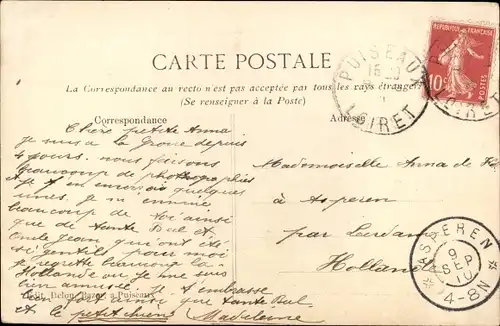 CARTE POSTALE
La Correspondance au recto n'est pas acceptée par tous les pays étrangers
(Se renseigner à la Poste)
Correspondance
Adresse
PUISEAUX
15
LOIRET
REPUBLIQUE FRANÇAISE
10c
POSTES
LOIRET
Chère petite Anna
Je suis à la depuis
4 jours. nous faisons
beaucoup de photographies
je t'en envoie quelques
unes, je m'ennuie
beaucoup de toi ainsi
que de tante Bul et
Oncle Jean qui ont été
si gentils pour moi
je regrette beaucoup la
Hollande où je me suis
bien amusée. je t'embrasse
ainsi que tante Bul
et le petit chien Madeleine
Edit. Delon-Bazot à Puiseaux
Mademoiselle Anna de
à Asperen
par Leerdam
Hollande
ASPEREN
9
SEP
10
4-8N